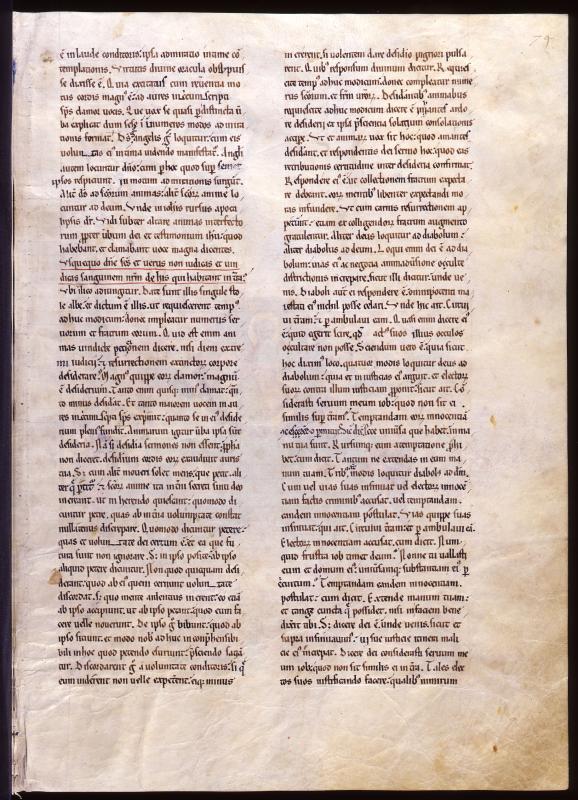 79
ē in laude conditoris: ipsa admiratio intime cō
templationis. Virtutis divine oracula obstupuis
se dixisse ē. Q̄ uia excitatus cum reuerentia mo
tus cordis magn᾿ ē: ad aures incircūscripti
sp̄s clamor uocis. Que uox se quasi p̄ distincta ū
ba explicat dum sese p̄ īnumeros modos ad mira
tionis format. Ds̄ ḡ angelis loquitur: cum eis
uoluntas ei᾿ intima uidenda manifestat᾿. Angli
autem locuntur dn̄o: cum p̄ hoc quod sup semet
ipsos respiciunt: in motum admirationis surgūt.
Alit᾿ ds̄ ad sc̄orum animas: alit᾿ sc̄orū anime lo
cuntur ad deum. Vnde in iohīs rursus apoca
lipsis dr̄. Vidi subter altare animas interfecto
rum ꝓpter uerbum dei et testimonium ihū: quod
habebant. et clamabant uoce magna dicentes.
Vsquequo dn̄e sc̄s et uerus non iudicas et uin
dicas sanguinem nr̄m de his qui habitant in t̄ra?
Vbi ilico adiungitur. Date sunt illis singule sto
le albe. et dictum ē illis. ut requiescerent temp᾿
adhuc modicum: donec impleatur numerus ser
uorum et fratrum eorum. Quid est enim ani
mas uindicte petitionem dicere. nisi diem extre
mi iudicii. ⁊ resurrectionem extinctorum corporū
desiderare? Magn᾿ quippe eorū clamor: magnū
ē desiderium. Tanto enim quisq: min᾿ clamat: qn̄
to minus desiderat. Et tanto maiorem uocem in au
res incircūscripti sp̄s exprimit: quanto se in ei᾿ deside
rium plenius fundit. Animarum igitur ūba ipsa sūt
desideria. Nā si desideria sermones non essent: ꝓpheta
non diceret. desiderium cordis eorum exaudiuit auris
tua. S; cum alit᾿ moueri solet mens que petit. ali
ter que petitur: ⁊ sc̄orū anime ita in interni secreti sinu deo
inherent. ut inherendo quiescant: quomodo di
cuntur petere. quas ab interna uoluntate constat
nullatenus discrepare? Quomodo dicuntur petere:
quas et uoluntatē dei certum ē: et ea que fu
tura sunt non ignorare? S; in ipso positę: ab ipso
aliquid petere dicuntur. Non quod quicquam desi
derant: quod ab ei᾿ quem cernunt uoluntate
discordat. S; quo mente ardentius inherent: eo etiā
ab ipso accipiunt. ut ab ipso petant: quod eum fa
cere uelle nouerunt. De ipso ḡ bibunt: quod ab
ipso sitiunt. et modo nob᾿ adhuc inconp̄hensibi
bili in hoc quod petendo esuriunt: p̄sciendo saciā
tur. Discordarent ḡ a uoluntate conditoris: si que
eum uiderent non uelle expeterent. eiq: minus
inhererent. si uolentem dare desiderio pigriori pulsa
rent. Quib᾿ responsum diuinum dicitur. Requies
cite temp᾿ adhuc modicum. donec compleatur nume
rus seruorum. et fratrum ūrorum. Desiderantib᾿ animabus
requiescite adhuc modicum dicere ē: inter ardorē desi
derii ex ipsa p̄scientia solatium consolationis
aspirare. Vt et animarum uox sit hoc: quod amantes
desiderant. et respondentis dei sermo hoc: quod eas
retributionis certitudine inter desideria confirmat.
Respondere ei᾿ ē: ut collectionem fratrum expecta
re debeant. eorum mentib᾿ libenter expectandi mo
ras infundere. Vt cum carnis resurrectionem ap
petunt: etiam ex colligendorum fratrum augmento
gratulentur. Aliter deus loquitur ad diabolum:
aliter diabolus ad deum. Loqui enim dei ē ad dia
bolum: uias ei᾿ ac negocia animaduersione occultę
districtionis increpare. sicut illi dicitur: unde ue
nis. Diaboli autē ei respondere ē: omnipotenti ma
iestati ei᾿ nichil posse celari. Vnde hic ait. Circui
ui t̄ram: ⁊ perambulaui eam. Quasi enim dicere ei᾿
ē: quid egerit scire. qd᾿ actus suos illius oculos
occultare non posse. Sciendum uero ē: quia sicut
hoc didicimus loco. quatuor modis loquitur deus ad
diabolum: quia et in iusticias ei᾿ arguit. et electorum
suorum contra illum iusticiam ꝓponit. sicut ait. Cō
siderasti seruum meum iob: quod non sit ei
similis sup t̄ram? Temptandam eorum innocentiā
ei concedendo permittit. Sicut dicit: Ecce uniūsa que habet. in ma
nu tua sunt. Rursumq: eum a temptatione ꝓhi
bet. cum dicit. Tantum ne extendas in eum ma
num tuam. Trib᾿ autē modis loquitur diabolus ad dm̄.
Cum uel uias suas insinuat. uel electorum innocē
tiam fictis criminib᾿ accusat. uel temptandam
eandem innocentiam postulat. Vias quippe suas
insinuat: qui ait. Circuiui t̄ram: et perambulaui eā.
Electorum innocentiam accusat. cum dicit. Nun
quid frustra iob timet deum? Nonne tu uallasti
eum et domum ei᾿. uniuersamq: substantiam ei᾿ p
circuitum? Temptandam eandem innocentiam
postulat: cum dicit. Extende manum tuam:
et tange cuncta quę possidet. nisi in faciem bene
dixerit tibi. S; dicere dei ē. unde uenis. sicut et
supra insinuauimus: ui sue iusticie itinera mali
cie ei᾿ increpare. Dicere dei considerasti seruum me
um iob: quod non sit similis ei in t̄ra. Tales elec
tos suos iustificando facere: qualib᾿ nimirum